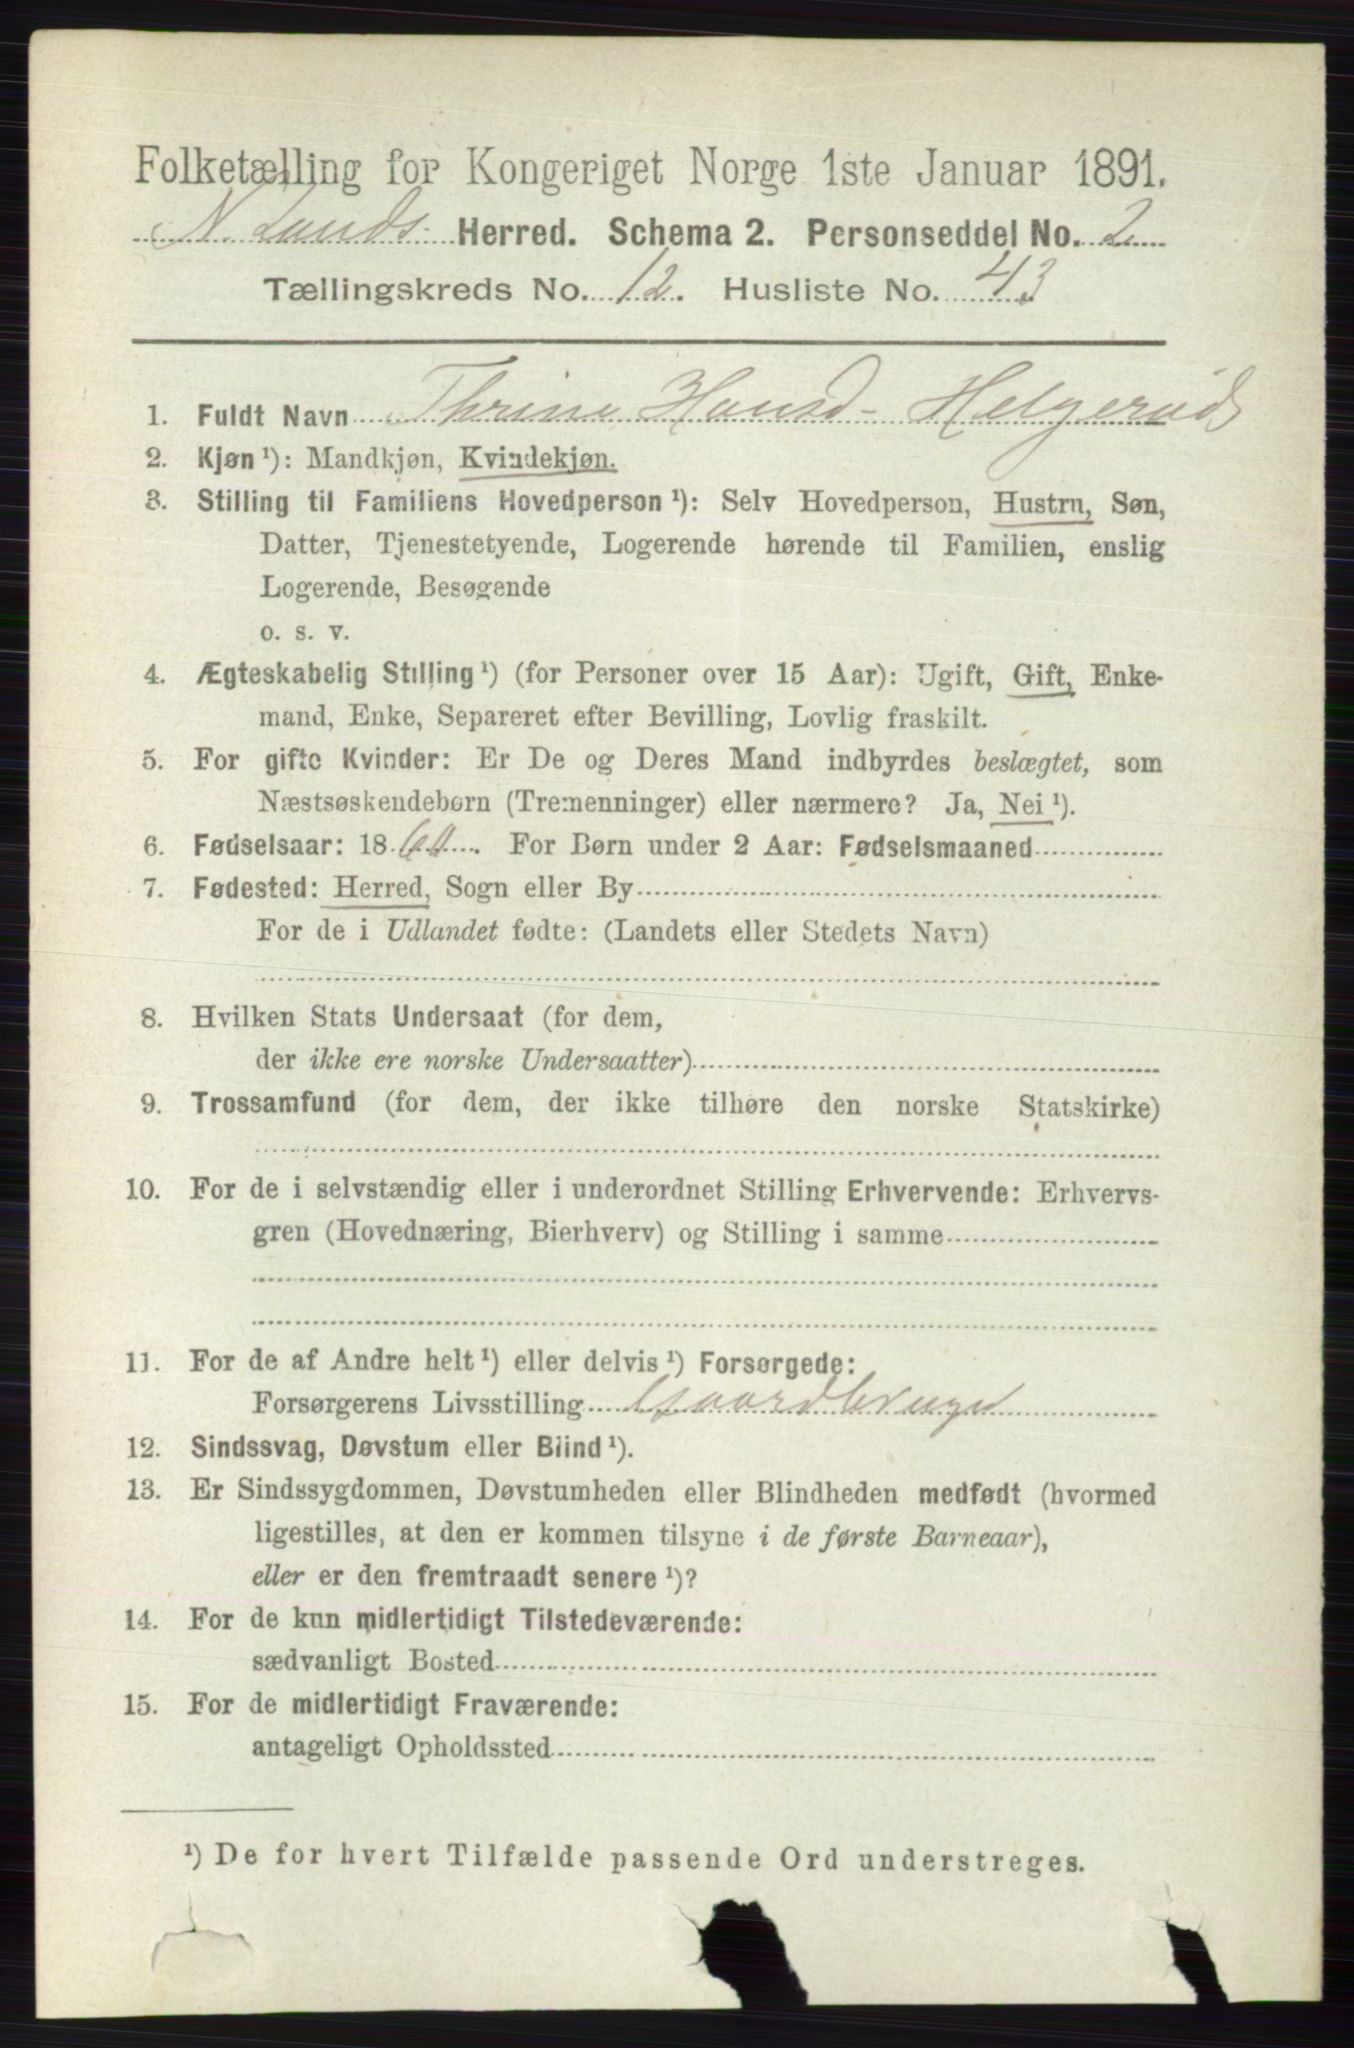 Folketælling for Kongeriget Norge 1ste Januar 1891.
N. Lands Herred. Schema 2. Personseddel No. 2
Tællingskreds No. 12. Husliste No. 43
1. Fuldt Navn Thrine Hansd- Helgerud
2. Kjøn ¹): Mandkjøn, Kvindekjøn.
3. Stilling til Familiens Hovedperson ¹): Selv Hovedperson, Hustru, Søn,
Datter, Tjenestetyende, Logerende hørende til Familien, enslig
Logerende, Besøgende
o. s. v.
4. Ægteskabelig Stilling ¹) (for Personer over 15 Aar): Ugift, Gift, Enke-
mand, Enke, Separeret efter Bevilling, Lovlig fraskilt.
5. For gifte Kvinder: Er De og Deres Mand indbyrdes beslægtet, som
Næstsøskendebørn (Tremenninger) eller nærmere? Ja, Nei ¹).
6. Fødselsaar: 18 60. For Børn under 2 Aar: Fødselsmaaned
7. Fødested: Herred, Sogn eller By
For de i Udlandet fødte: (Landets eller Stedets Navn)
8. Hvilken Stats Undersaat (for dem,
der ikke ere norske Undersaatter)
9. Trossamfund (for dem, der ikke tilhøre den norske Statskirke)
10. For de i selvstændig eller i underordnet Stilling Erhvervende: Erhvervs-
gren (Hovednæring, Bierhverv) og Stilling i samme
11. For de af Andre helt ¹) eller delvis ¹) Forsørgede:
Forsørgerens Livsstilling Gaardbruger
12. Sindssvag, Døvstum eller Blind ¹).
13. Er Sindssygdommen, Døvstumheden eller Blindheden medfødt (hvormed
ligestilles, at den er kommen tilsyne i de første Barneaar),
eller er den fremtraadt senere ¹)?
14. For de kun midlertidigt Tilstedeværende:
sædvanligt Bosted
15. For de midlertidigt Fraværende:
antageligt Opholdssted
¹) De for hvert Tilfælde passende Ord understreges.